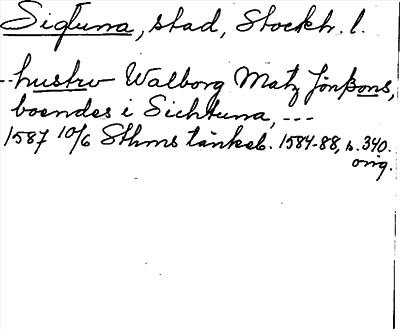 Sigtuna, stad, Stockh. l.
--hustrv Walborg Matz Jönßons,
boendes i Sichtuna, ---
1587 10/6 Sthms tänkeb. 1584-88, s. 340.
orig.